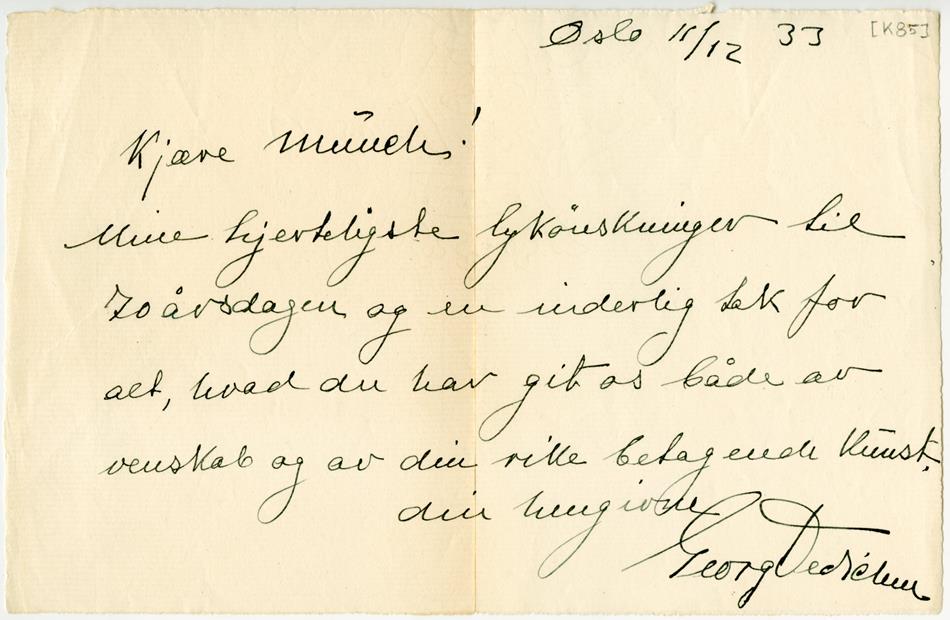 Oslo 11/12 33 [K85]
Kjære Münch!
Mine hjerteligste lykönskninger til
70 årsdagen og en inderlig tak for
alt, hvad du har git os både av
venskab og av din rike betagende Kunst.
din hengivne
Georg Dedichen